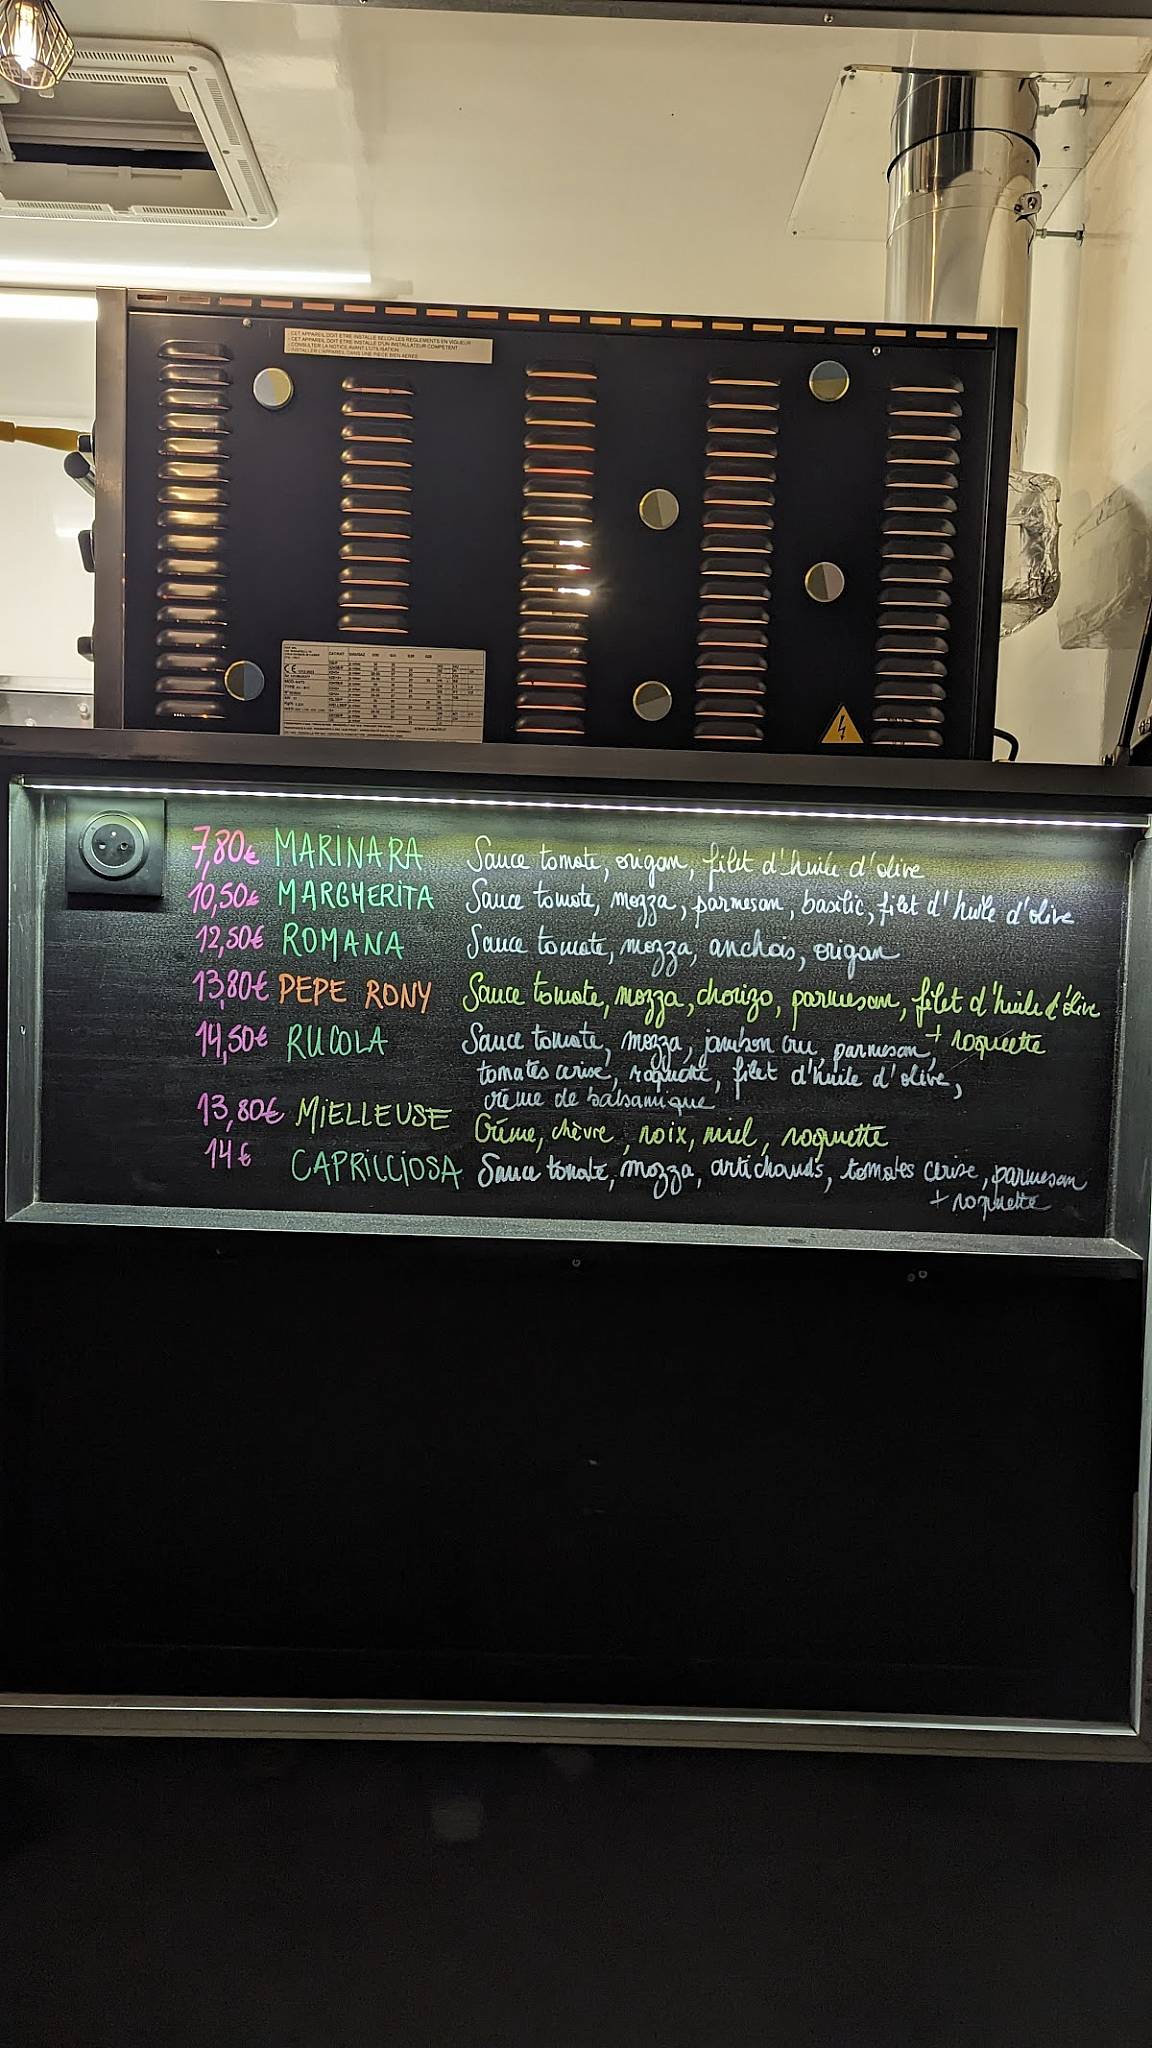 - CET APPAREIL DOIT ETRE INSTALLE SELON LES REGLEMENTS EN VIGUEUR
- CET APPAREIL DOIT ETRE INSTALLE D'UN INSTALLATEUR COMPETENT
- CONSULTER LA NOTICE AVANT L'UTILISATION
- INSTALLER L'APPAREIL DANS UNE PIECE BIEN AEREE
CE
7,80€ MARINARA Sauce tomate, origan, filet d'huile d'olive
10,50€ MARGHERITA Sauce tomate, mozza, parmesan, basilic, filet d'huile d'olive
12,50€ ROMANA Sauce tomate, mozza, anchois, origan
13,80€ PEPE RONY Sauce tomate, mozza, chorizo, parmesan, filet d'huile d'olive
+ roquette
14,50€ RUCOLA Sauce tomate, mozza, jambon cru, parmesan,
tomates cerise, roquette, filet d'huile d'olive,
crème de balsamique
13,80€ MIELLEUSE Crème, chèvre, noix, miel, roquette
14€ CAPRICCIOSA Sauce tomate, mozza, artichauds, tomates cerise, parmesan
+ roquette